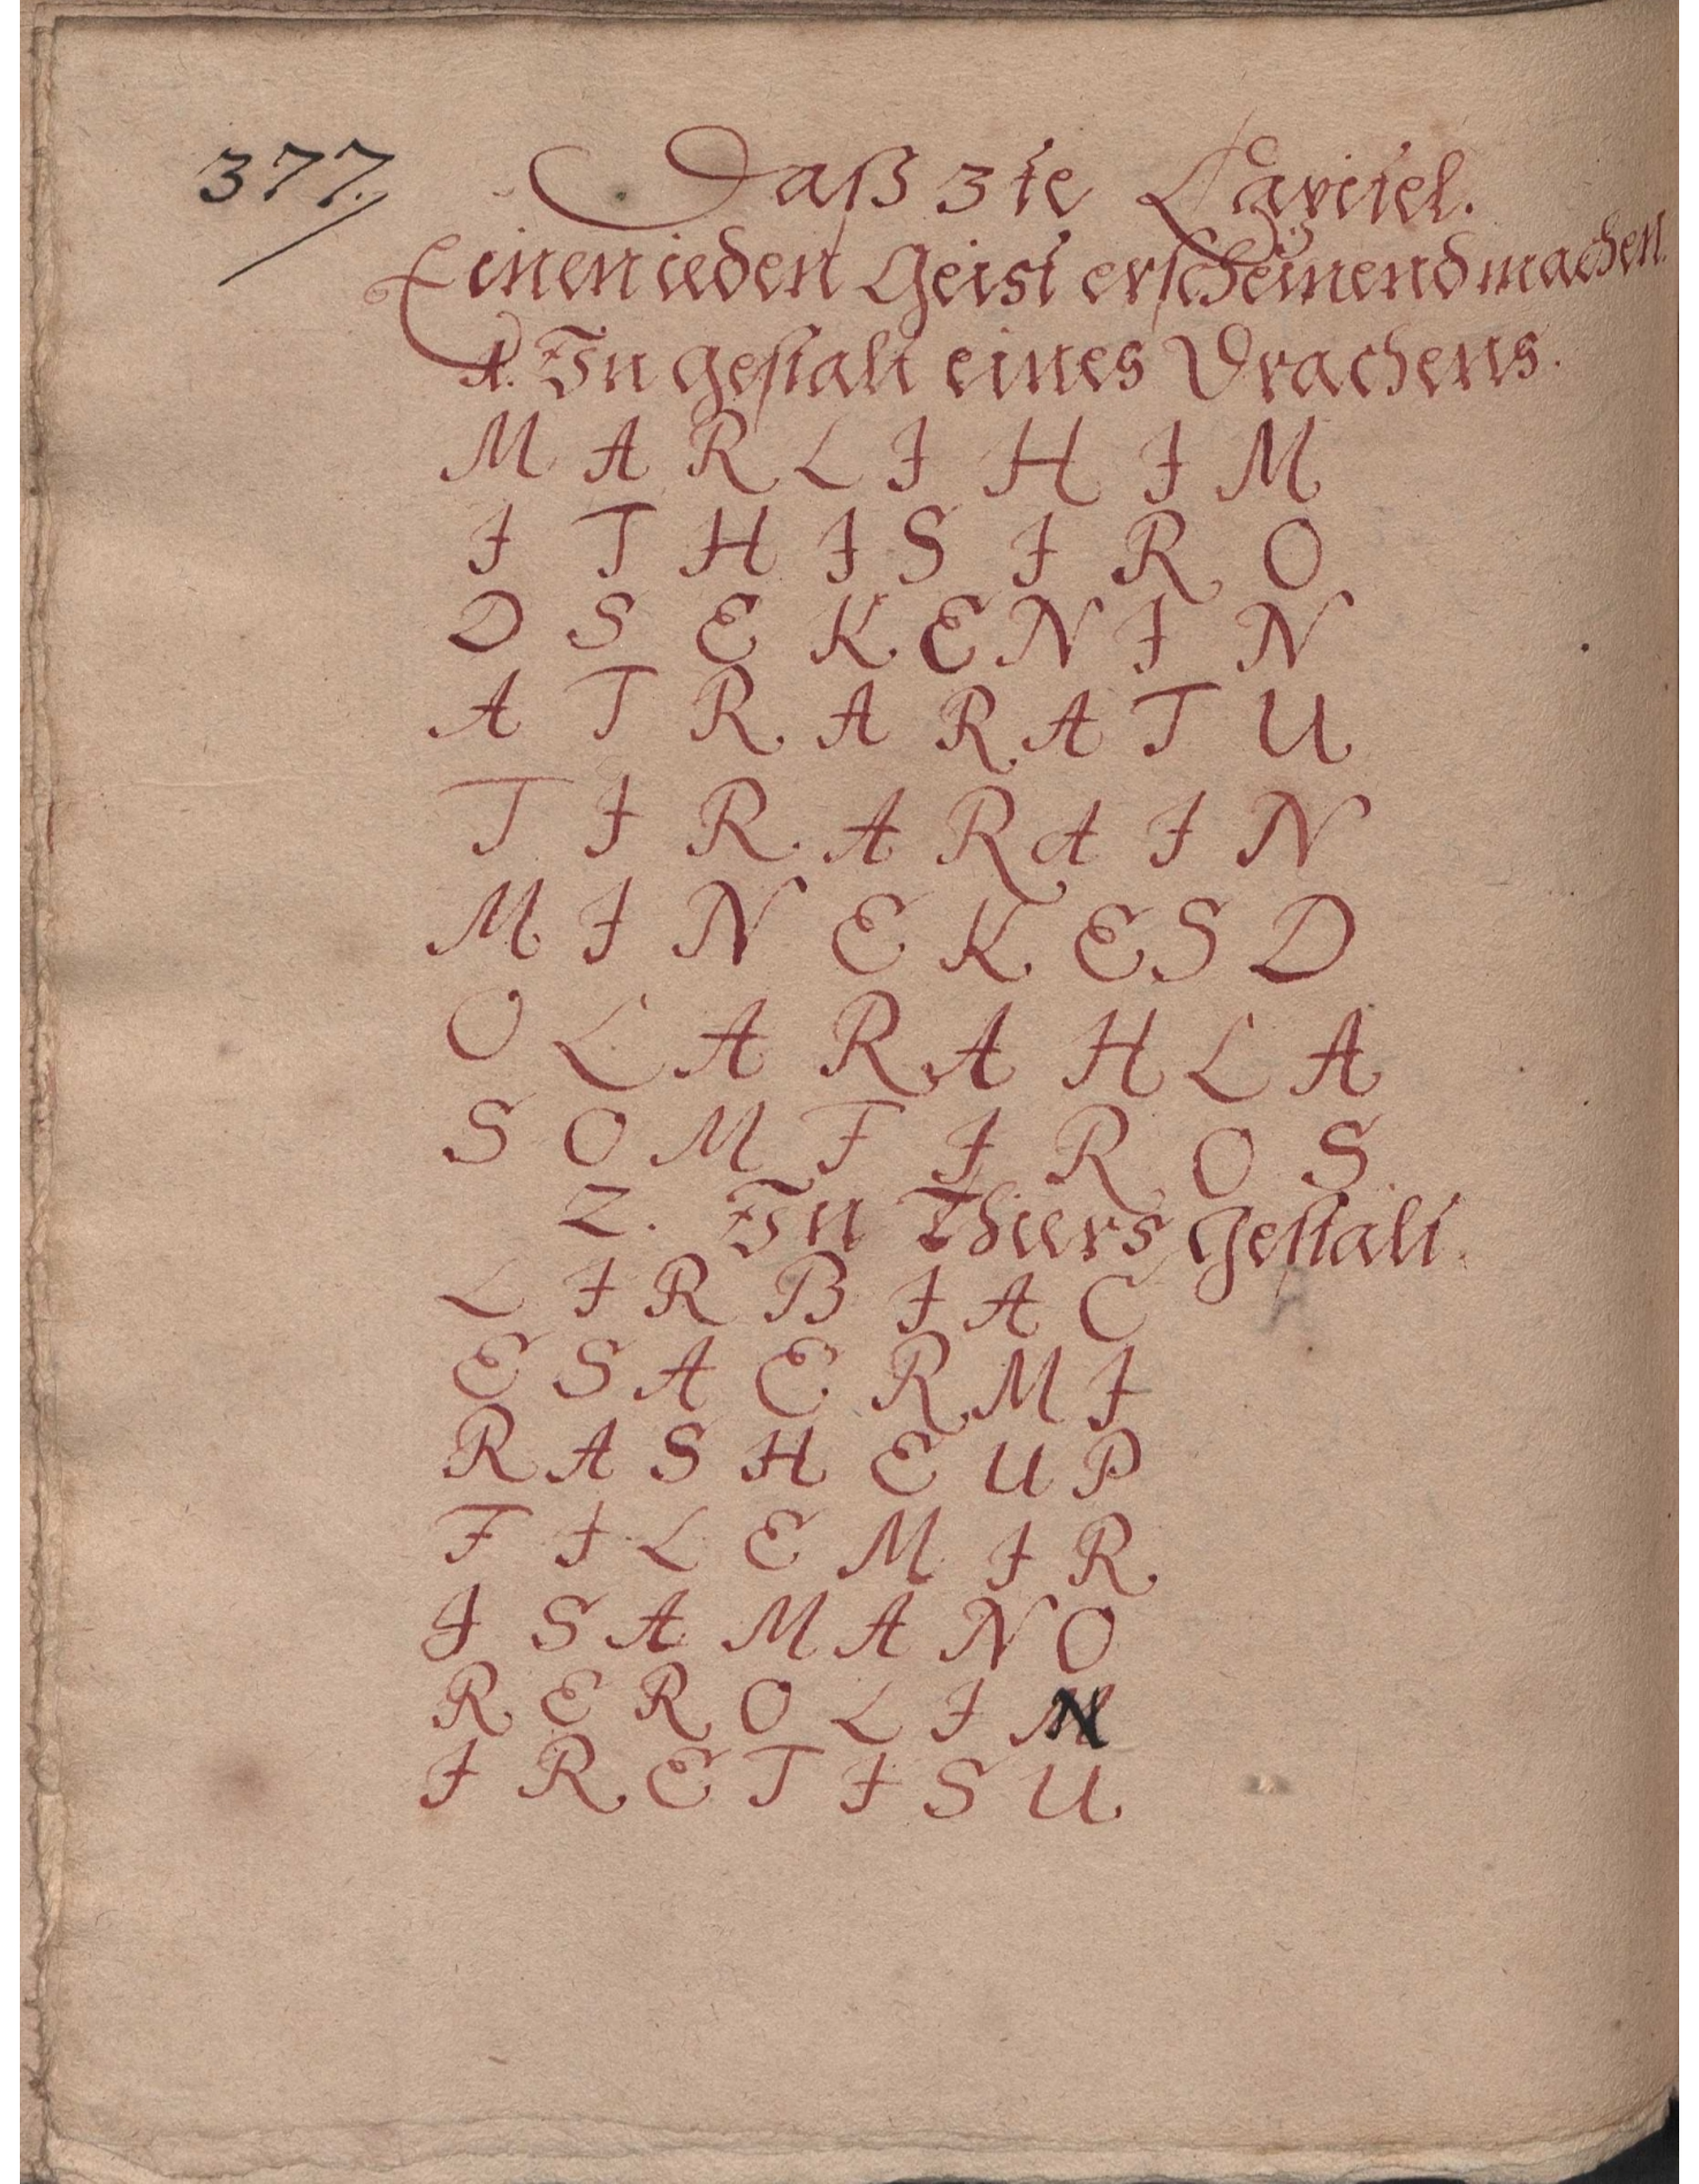 377.
Daß 3te Capitel.
Einen ieden Geist erscheinend machen.
1. In gestalt eines Drachens.
M A R L I H I M
I T H I S I R O
D S E K E N I N
A T R A R A T U
T I R A R A I N
M I N E K E S D
O L A R A H L A
S O M F I R O S
2. In Thiers Gestalt.
L I R B I A C
E S A E R M I
R A S H E U P
F I L E M I R
I S A M A N O
R E R O L I N
I R E T I S U